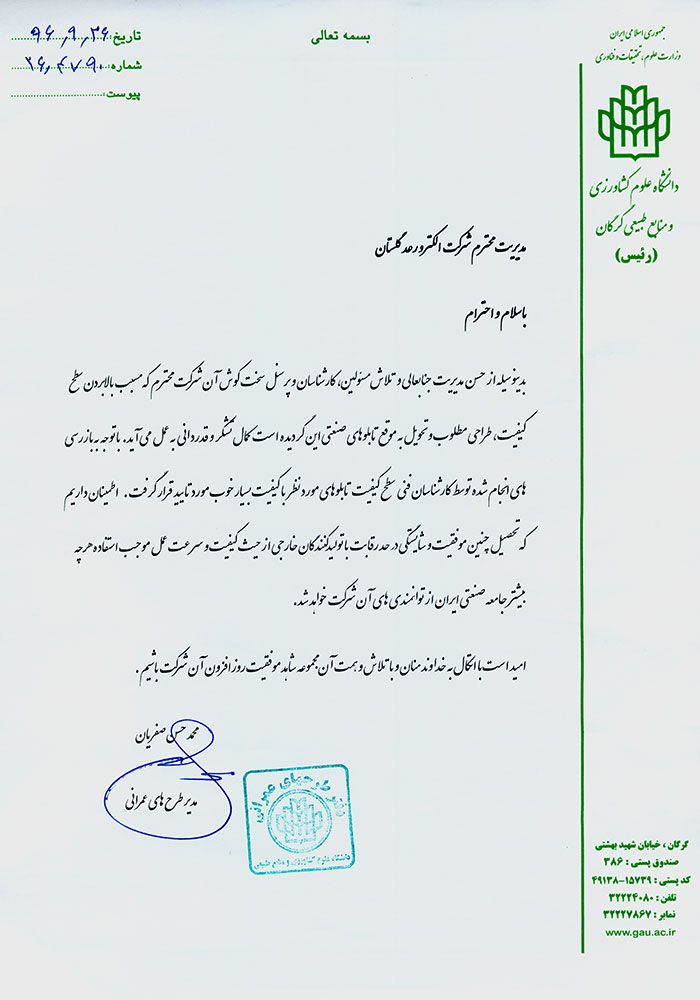 بسمه تعالی
تاریخ: ۹۶,۹,۲۶
شماره:
پیوست:
جمهوری اسلامی ایران
وزارت علوم، تحقیقات و فناوری
دانشگاه علوم کشاورزی
و منابع طبیعی گرگان
(رئیس)
مدیریت محترم شرکت الکترو رعد گلستان
با سلام و احترام
بدینوسیله از حسن مدیریت جنابعالی و تلاش مسئولین، کارشناسان و پرسنل سخت کوش آن شرکت محترم که مسبب بالا بردن سطح
کیفیت، طراحی مطلوب و تحویل به موقع تابلوهای صنعتی این گردیده است کمال تشکر و قدردانی به عمل می آید. با توجه به بازرسی
های انجام شده توسط کارشناسان فنی سطح کیفیت تابلوهای مورد نظر با کیفیت بسیار خوب مورد تایید قرار گرفت. اطمینان داریم
که تحصیل چنین موفقیت و شایستگی در حد رقابت با تولیدکنندگان خارجی از حیث کیفیت و سرعت عمل موجب استفاده هرچه
بیشتر جامعه صنعتی ایران از توانمندی های آن شرکت خواهد شد.
امید است با اتکال به خداوند منان و با تلاش و همت آن مجموعه شاهد موفقیت روز افزون آن شرکت باشیم.
محمد حسن صفریان
مدیر طرح های عمرانی
دفتر طرحهای عمرانی
دانشگاه علوم کشاورزی و منابع طبیعی
گرگان ، خیابان شهید بهشتی
صندوق پستی : ۳۸۶
کد پستی : ۱۵۷۳۹-۴۹۱۳۸
تلفن : ۳۲۲۲۴۰۸۰
نمابر : ۳۲۲۲۷۸۶۷
www.gau.ac.ir